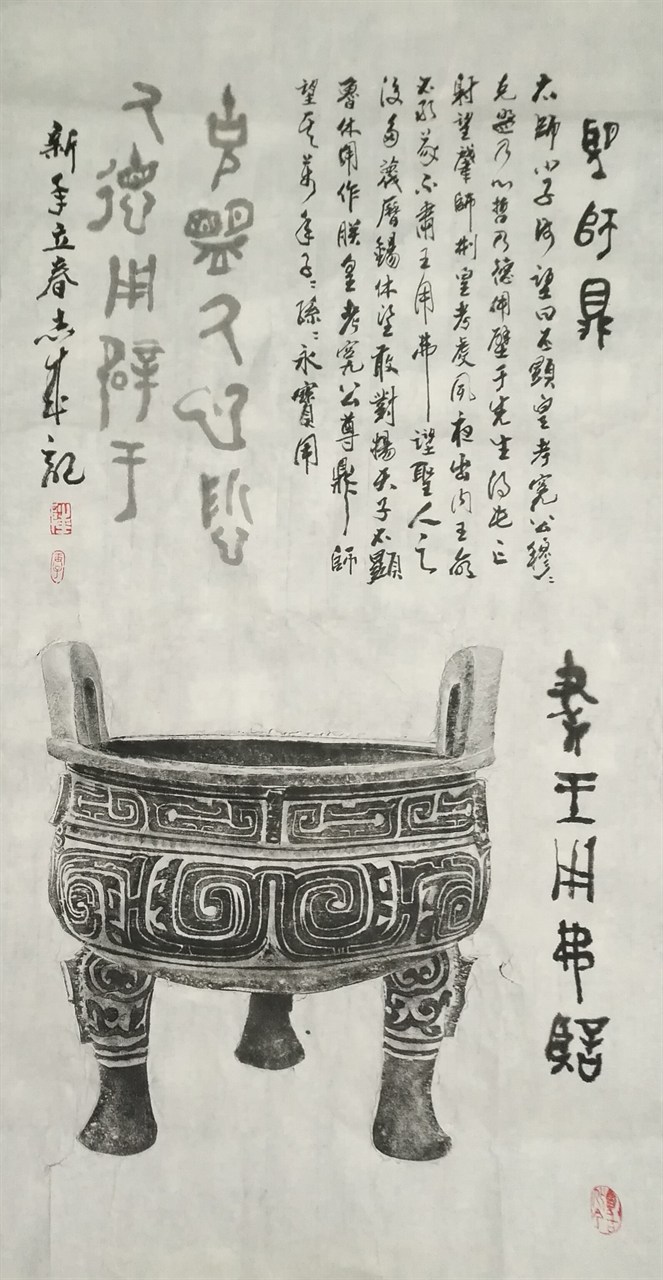 望師鼎
大師小子師望曰不顯皇考宄公穆〻
克盟乃心哲乃德用辟于先生得屯亡
望肇師荆皇考虔夙夜出內王命
不敢不肅王用弗望聖人之
後多蔑曆錫休望敢對揚天子不顯
魯休用作朕皇考宄公尊鼎師
望其萬年子〻孫〻永寶用
克盟乃心哲
乃德用辟于
新年立春志成記
肅王用弗